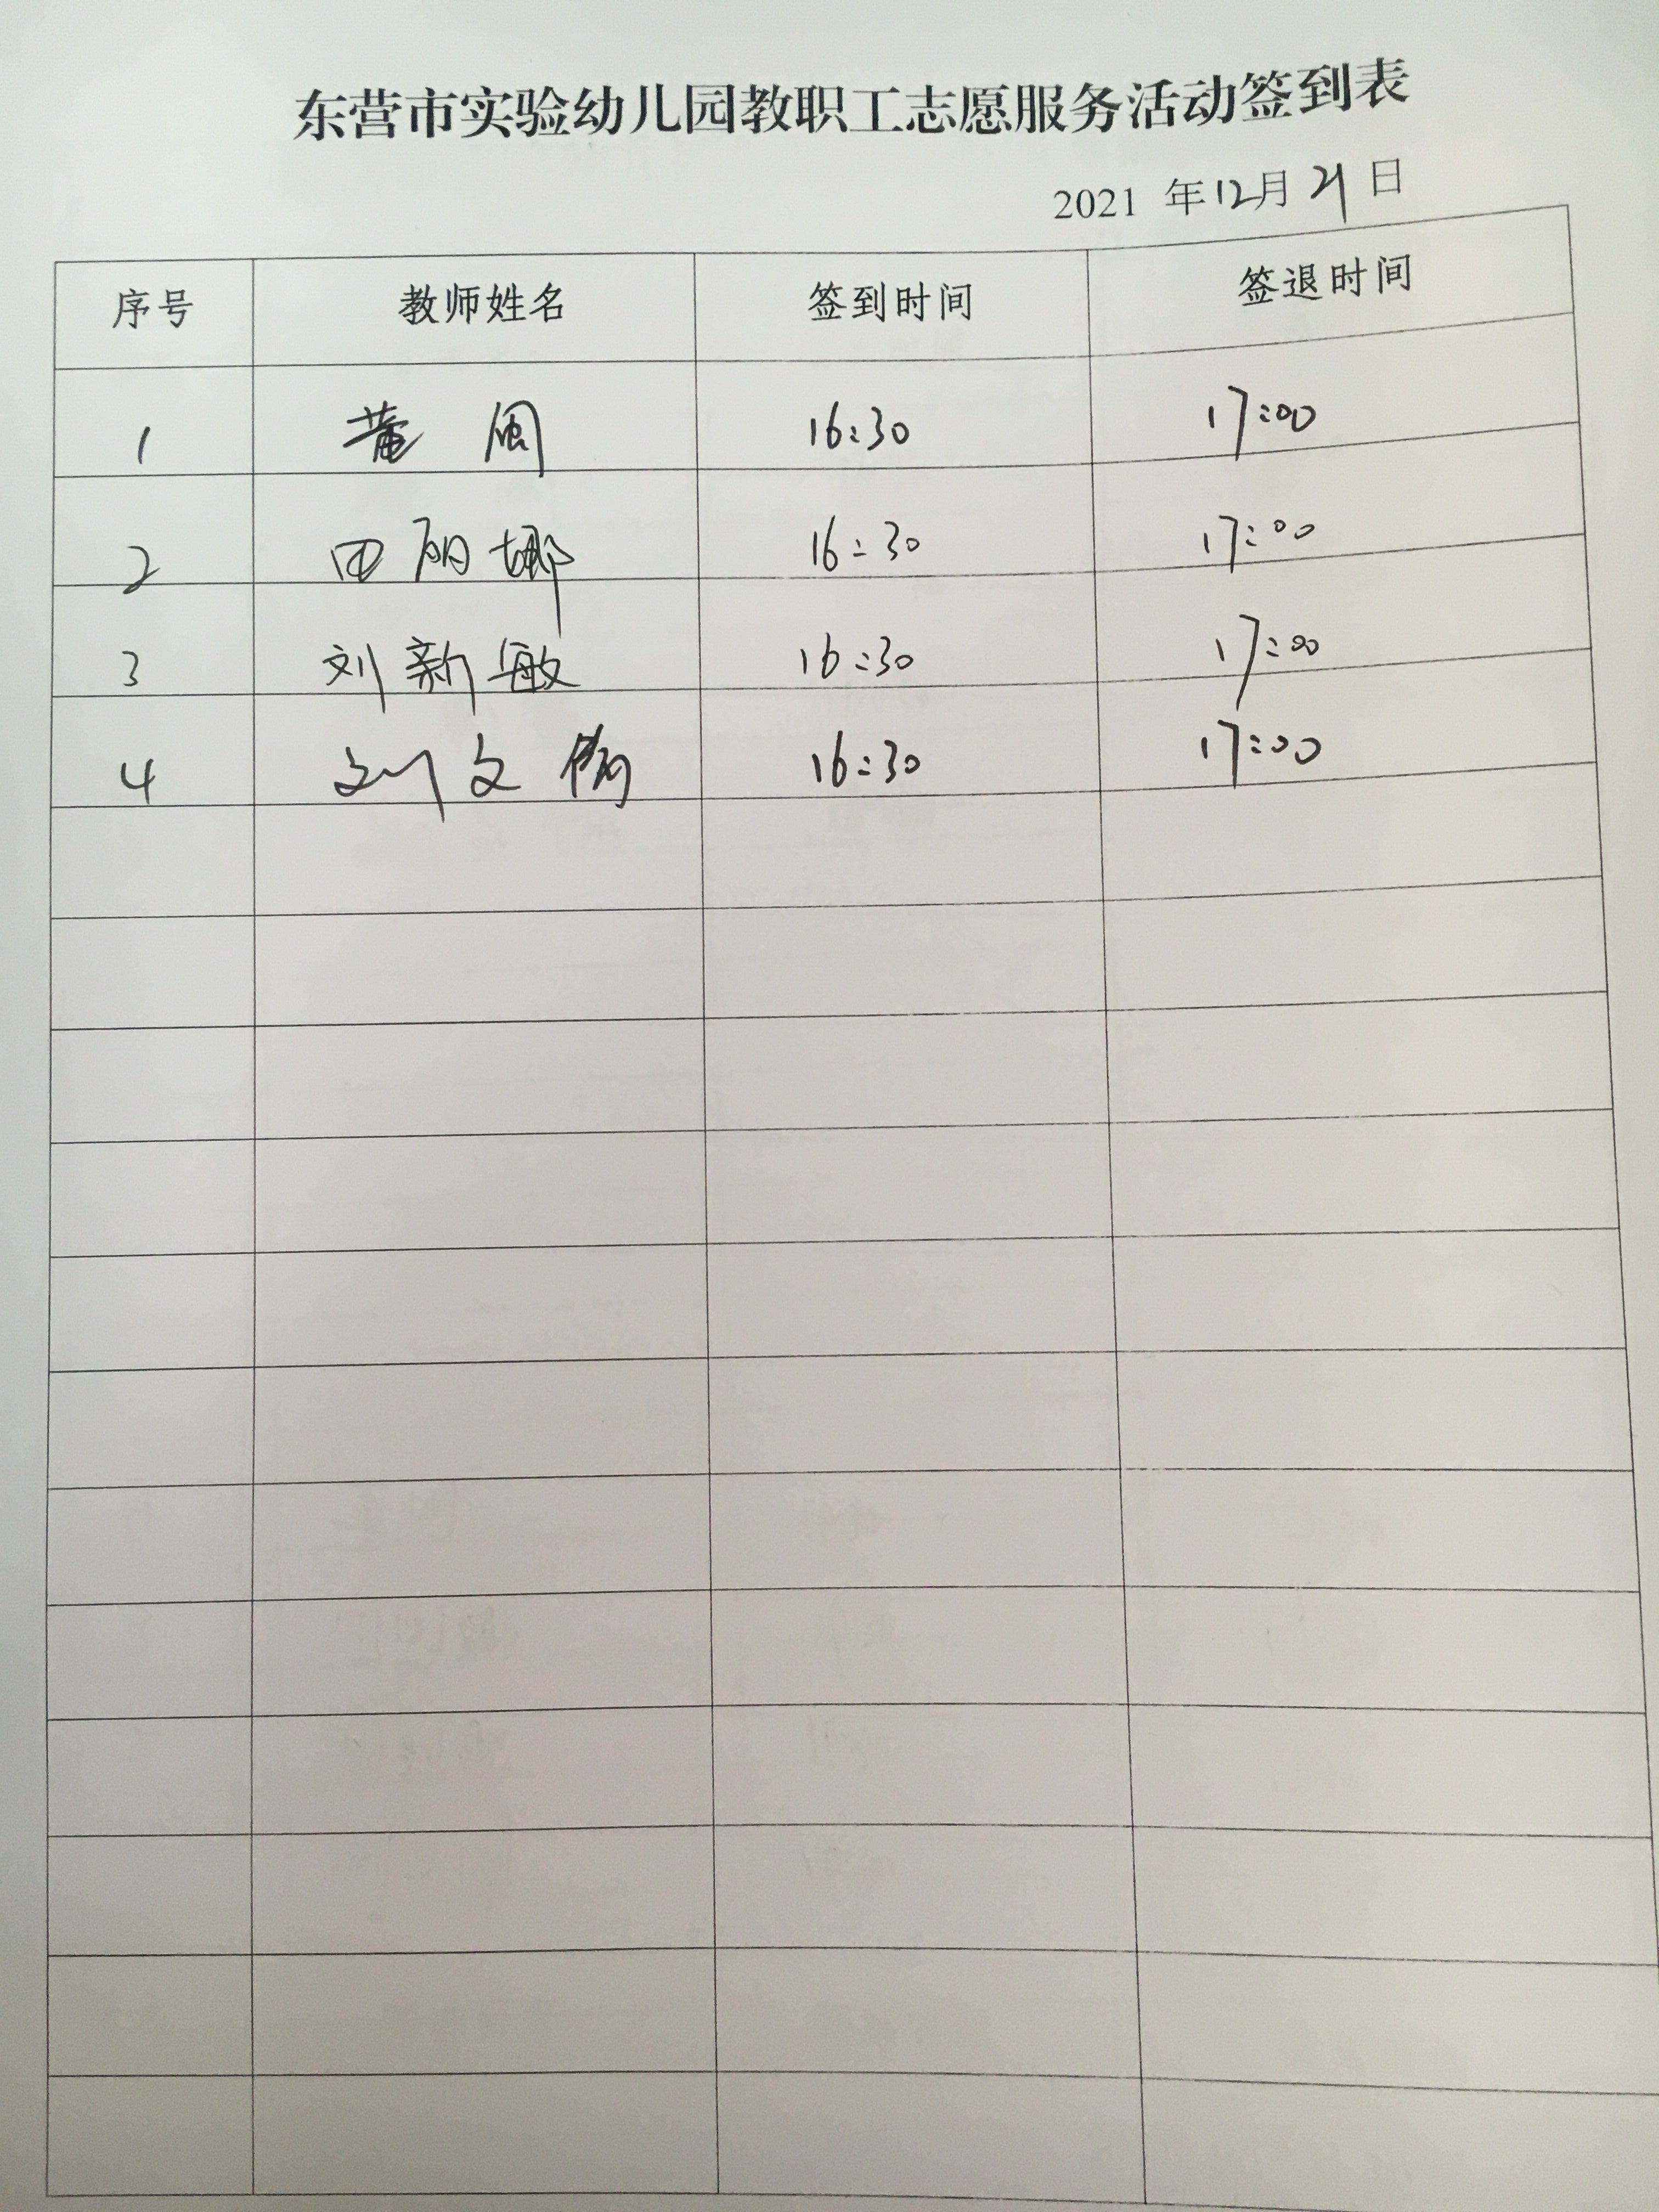 东营市实验幼儿园教职工志愿服务活动签到表
2021 年12月21日
序号 教师姓名 签到时间 签退时间
1 16:30 17:00
2 田丽娜 16:30 17:00
3 刘新敏 16:30 17:00
4 刘文 16:30 17:00